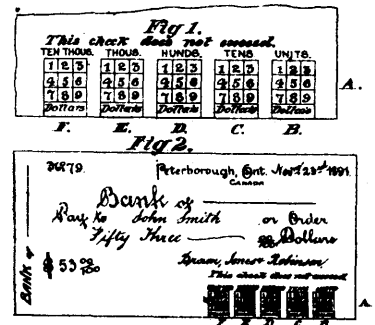 Fig 1.
This check does not exceed.
TEN THOUS. THOUS. HUNDS. TENS UNITS.
1 2 3 1 2 3 1 2 3 1 2 3 1 2 3
4 5 6 4 5 6 4 5 6 4 5 6 4 5 6 A.
7 8 9 7 8 9 7 8 9 7 8 9 7 8 9
Dollars Dollars Dollars Dollars Dollars
F. E. D. C. B.
Fig 2.
79. Peterborough, Ont. Novr 23rd 1891.
CANADA
Bank of
Pay to John Smith or Order
Fifty Three 00/100 Dollars
BANK of
$ 53 00/100 Brown, Jones & Robinson
This check does not exceed
A
F E D C B